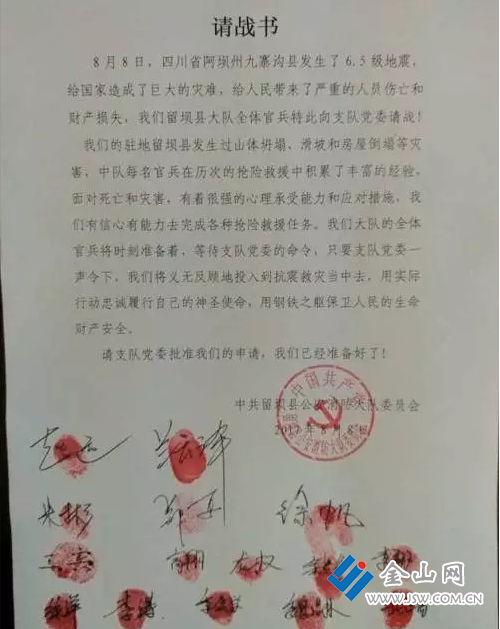 请战书
8月8日，四川省阿坝州九寨沟县发生了6.5级地震，
给国家造成了巨大的灾难，给人民带来了严重的人员伤亡和
财产损失，我们留坝县大队全体官兵特此向支队党委请战！
我们的驻地留坝县发生过山体坍塌、滑坡和房屋倒塌等灾
害，中队每名官兵在历次的抢险救援中积累了丰富的经验，
面对死亡和灾害，有着很强的心理承受能力和应对措施，我
们有信心有能力去完成各种抢险救援任务。我们大队的全体
官兵将时刻准备着，等待支队党委的命令，只要支队党委一
声令下，我们将义无反顾地投入到抗震救灾当中去，用实际
行动忠诚履行自己的神圣使命，用钢铁之躯保卫人民的生命
财产安全。
请支队党委批准我们的申请，我们已经准备好了！
中共留坝县公安消防大队委员会
2017年8月8日
徐帆
李涛
金山网
WWW.JSW.COM.CN